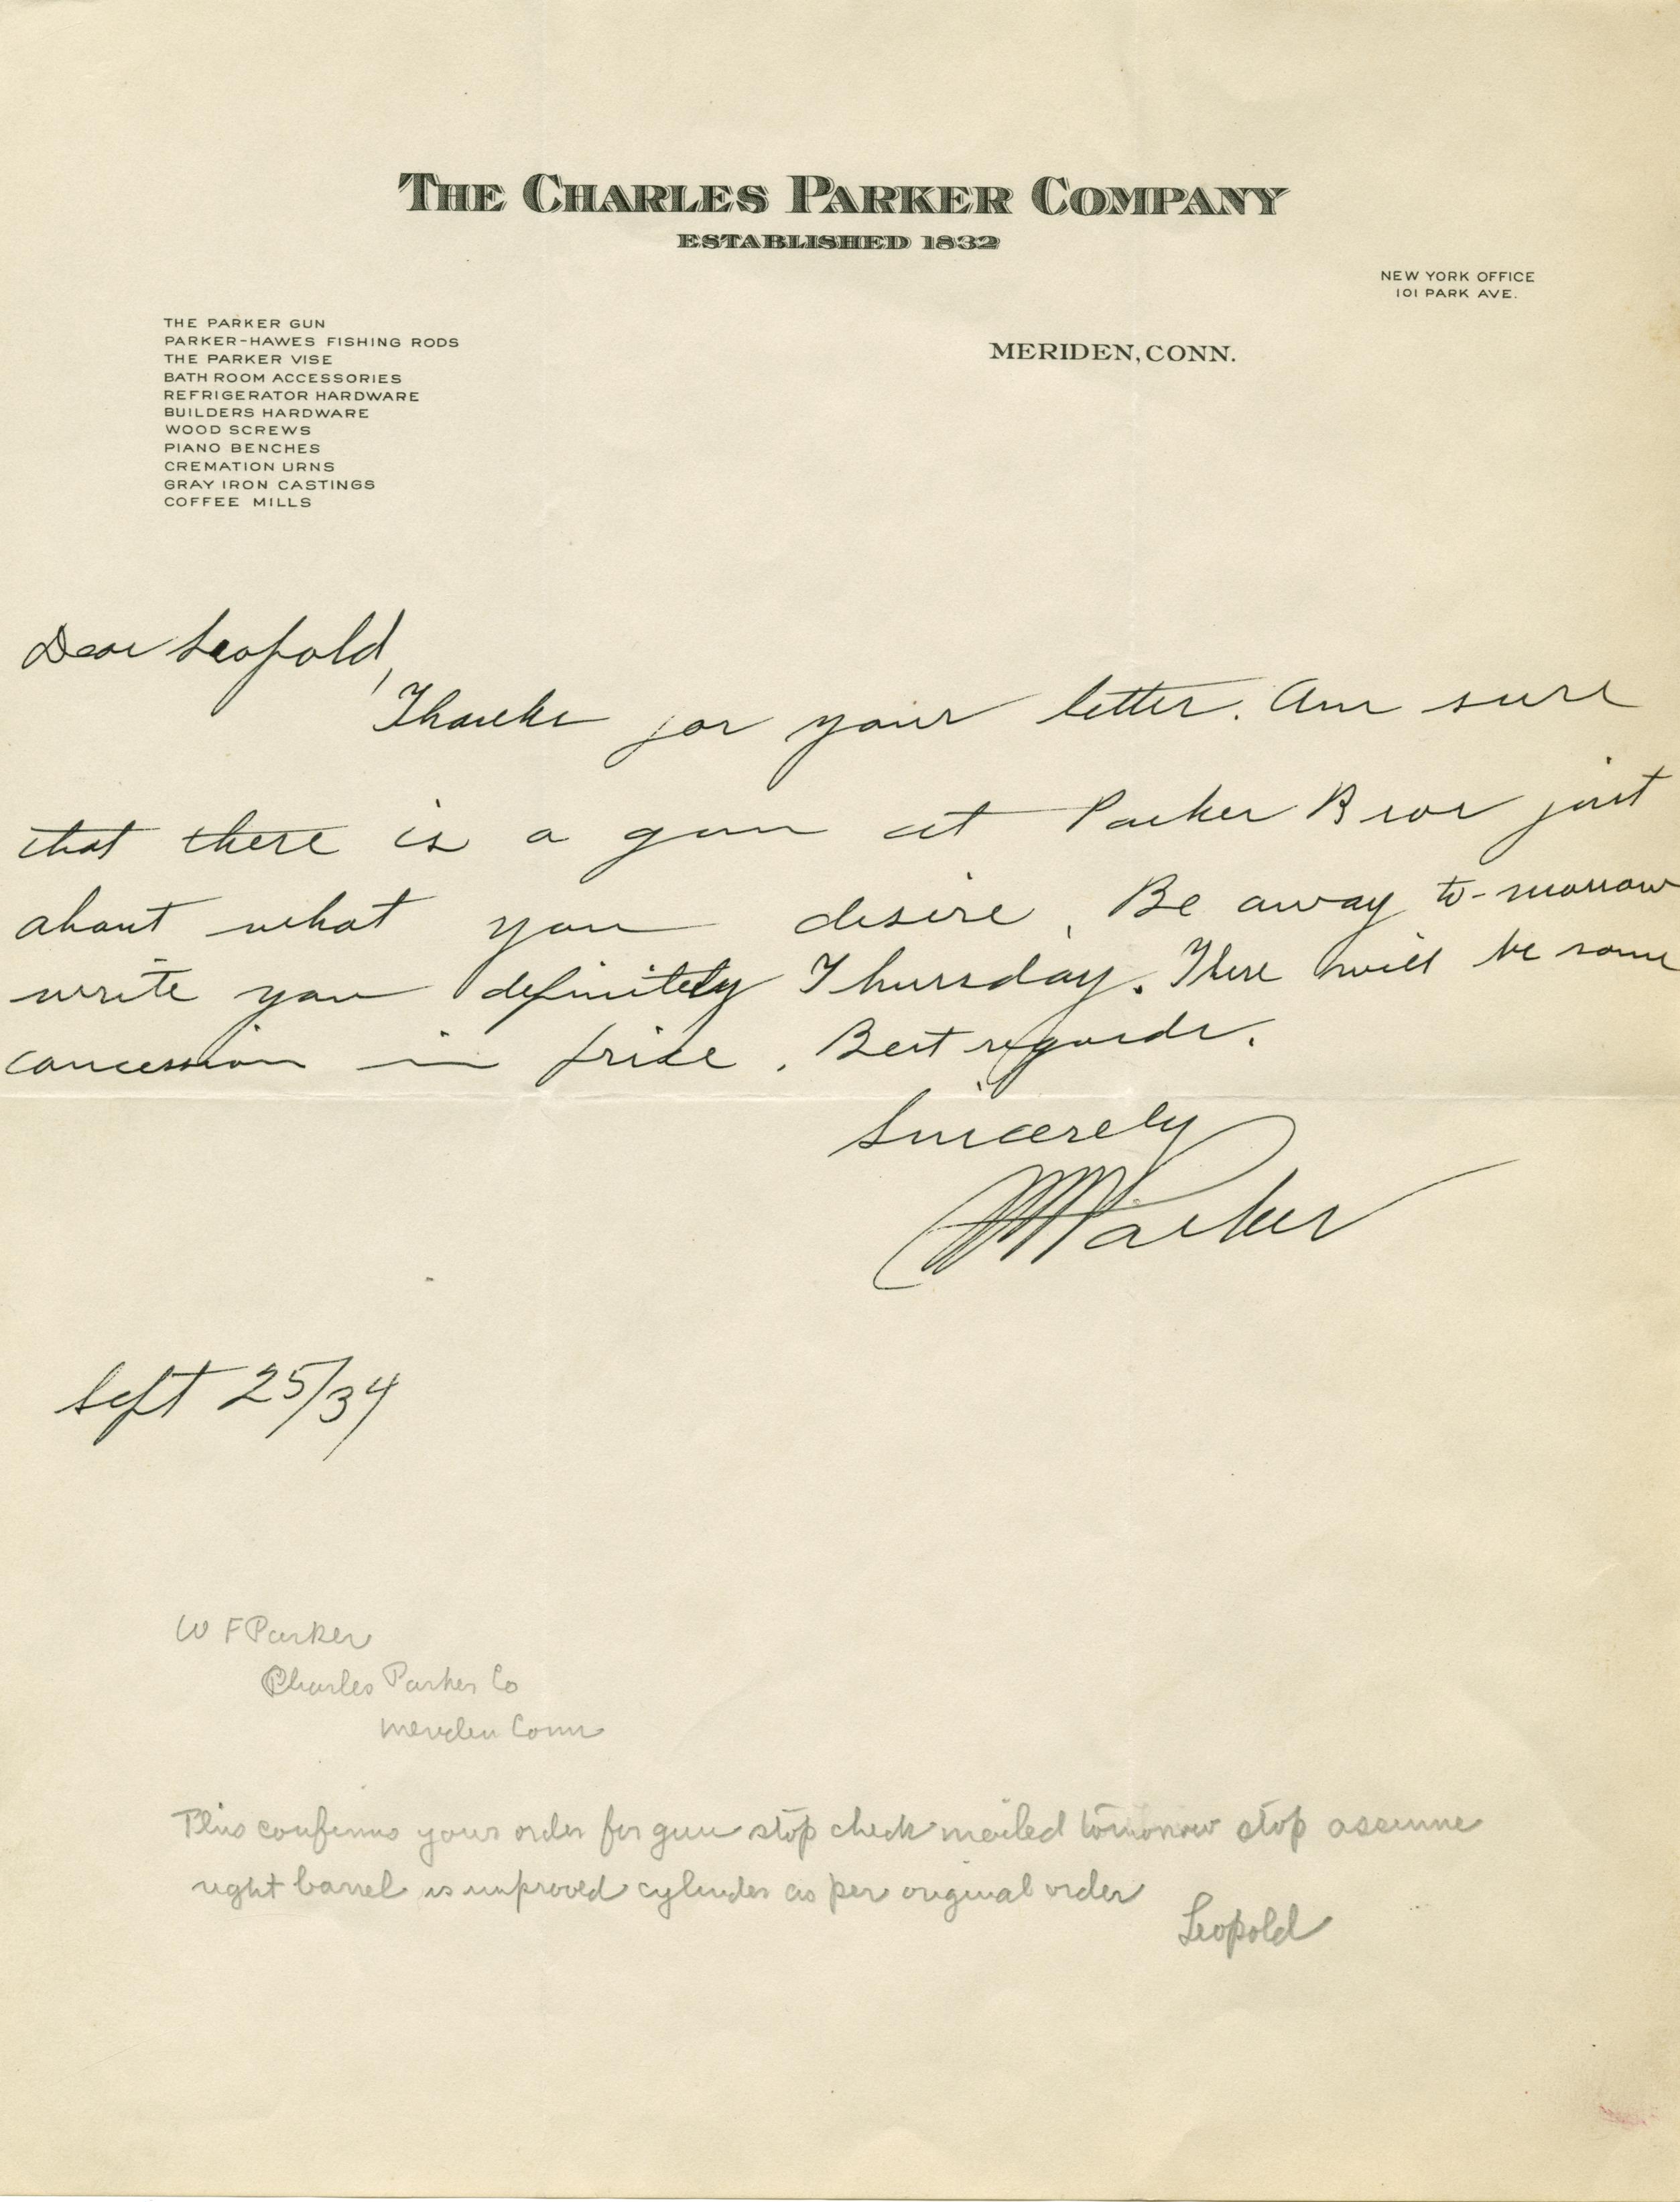 THE CHARLES PARKER COMPANY
ESTABLISHED 1832
NEW YORK OFFICE
101 PARK AVE.
MERIDEN, CONN.
THE PARKER GUN
PARKER-HAWES FISHING RODS
THE PARKER VISE
BATH ROOM ACCESSORIES
REFRIGERATOR HARDWARE
BUILDERS HARDWARE
WOOD SCREWS
PIANO BENCHES
CREMATION URNS
GRAY IRON CASTINGS
COFFEE MILLS
Dear Leopold,
Thanks for your letter. Am sure
that there is a gun at Parker Bros just
about what you desire. Be away to-morrow
write you definitely Thursday. There will be some
concession in price. Best regards.
Sincerely
Parker
Sept 25/34
W F Parker
Charles Parker Co
Meriden Conn
This confirms your order for gun stop check mailed tomorrow stop assume
right barrel is improved cylinder as per original order
Leopold